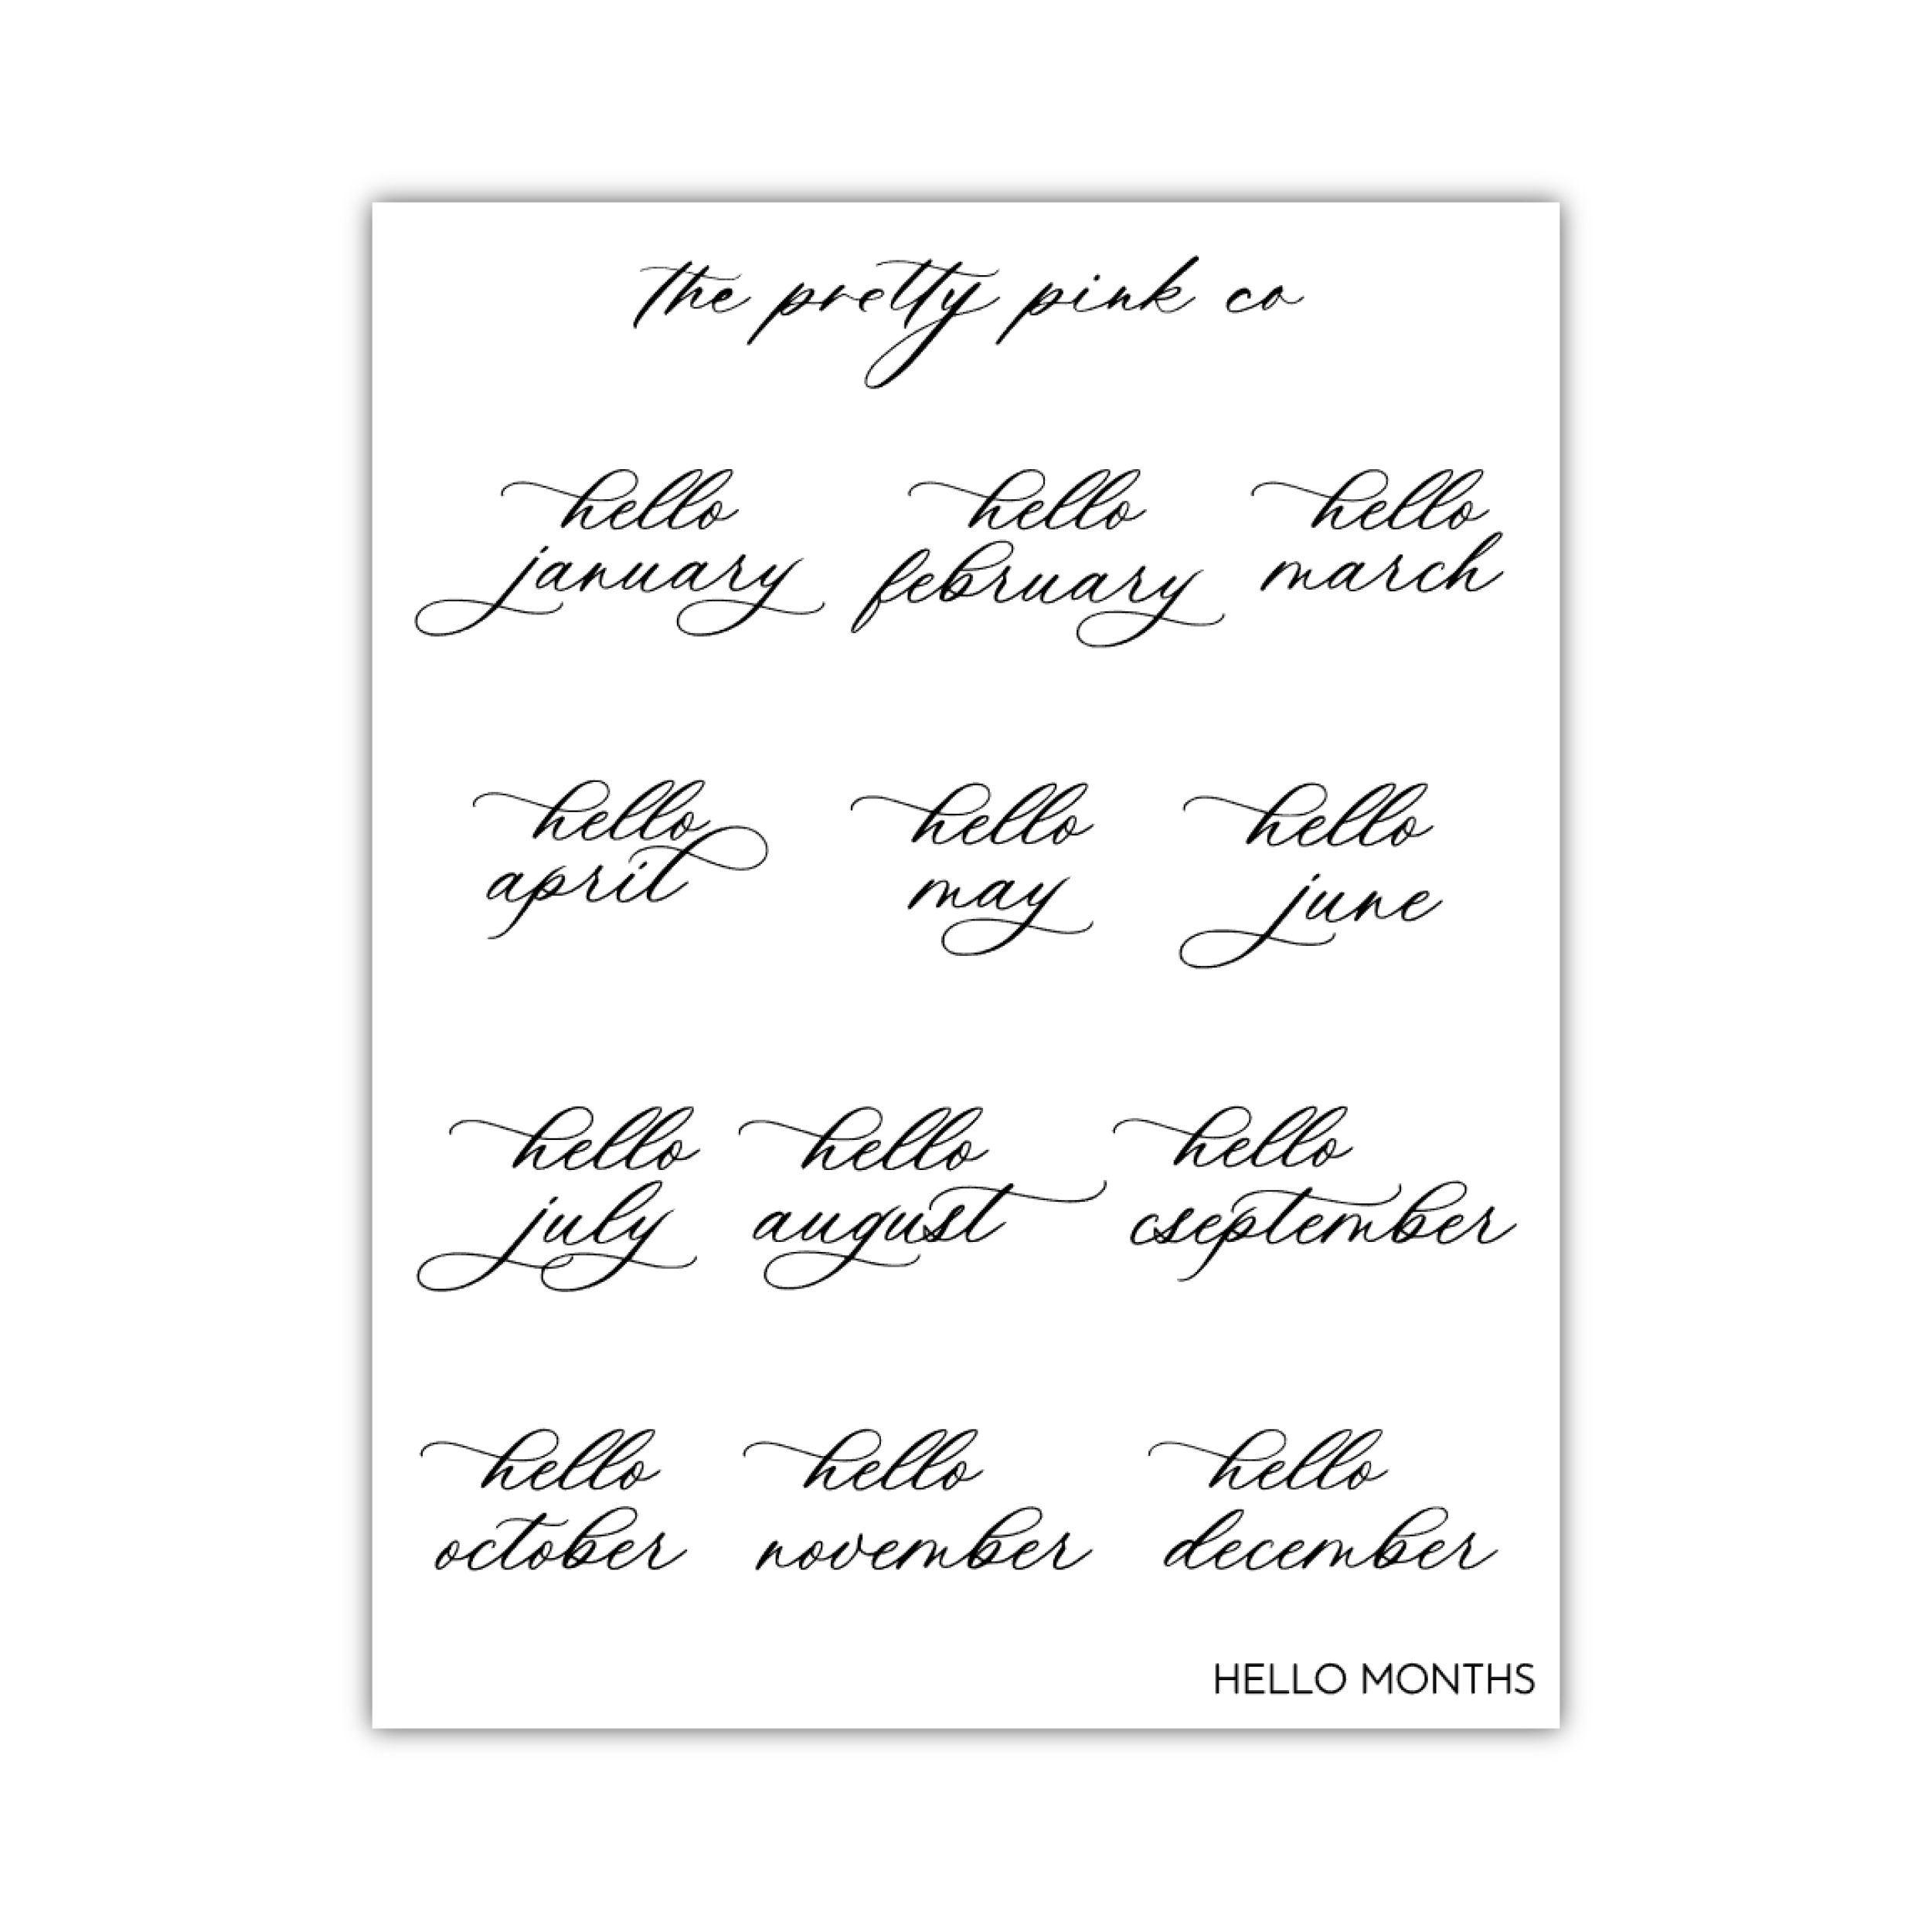 the pretty pink co
hello hello hello
january february march
hello hello hello
april may june
hello hello hello
july august september
hello hello hello
october november december
HELLO MONTHS